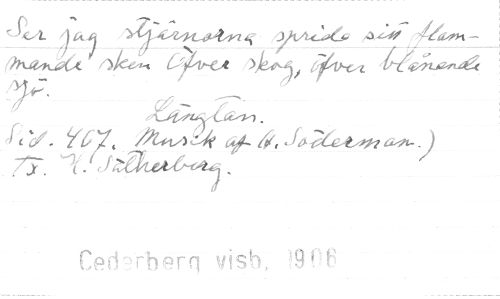 Ser jag stjärnorna sprida sitt flam-
mande sken Öfver skog, öfver blånande
sjö.
Längtan.
Sid. 467. Musik af A. Söderman.)
Tx. H. Sätherberg.
Cederberg visb, 1906